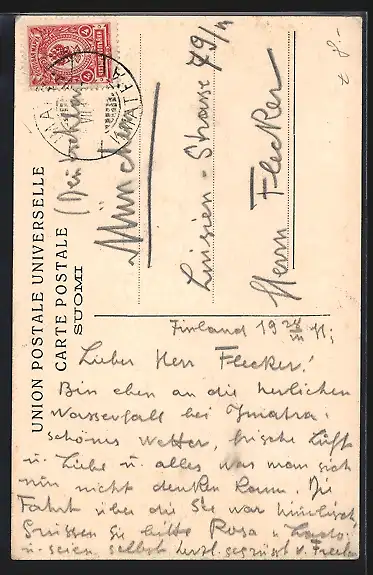 UNION POSTALE UNIVERSELLE
CARTE POSTALE
SUOMI
IMATRA
Herrn Flecker
Luisen-Strasse 79/
München
(Deutschland
Finland 19
Lieber Herr Flecker!
Bin eben an die herlichen
Wasserfall bei Imatra:
schönes Wetter, frische Luft
u. Liebe u. alles was man sich
nun nicht denken kann. Die
Fahrt über die See war himlisch
Grüssen Sie bitte Rosa u.
u. seien selbst herzl. gegrüsst v.